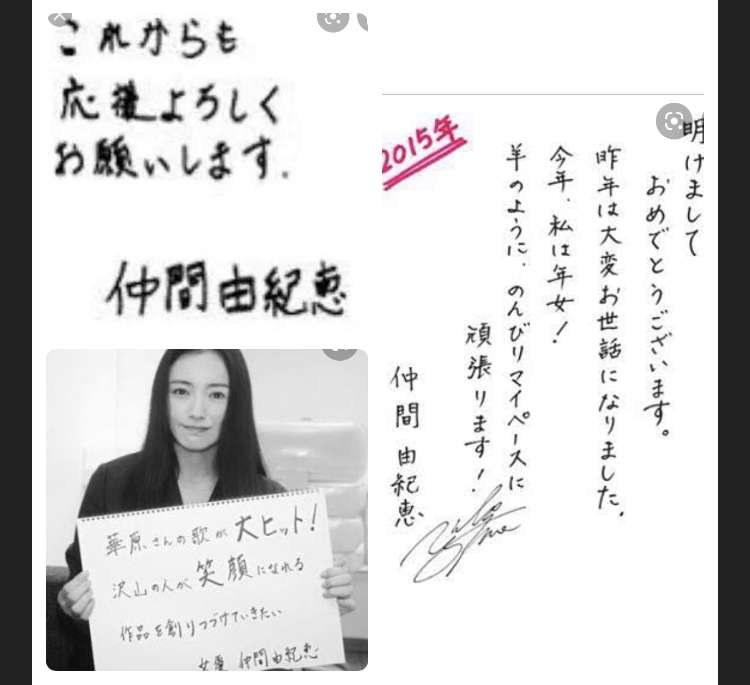 これからも
応援よろしく
お願いします.
仲間由紀恵
華原さんの歌が大ヒット!
沢山の人が笑顔になれる
作品を創りつづけていきたい
女優 仲間由紀恵
明けまして
おめでとうございます。
昨年は大変お世話になりました.
今年、私は年女!
羊のように、のんびりマイペースに
頑張ります!
仲間由紀恵
2015年